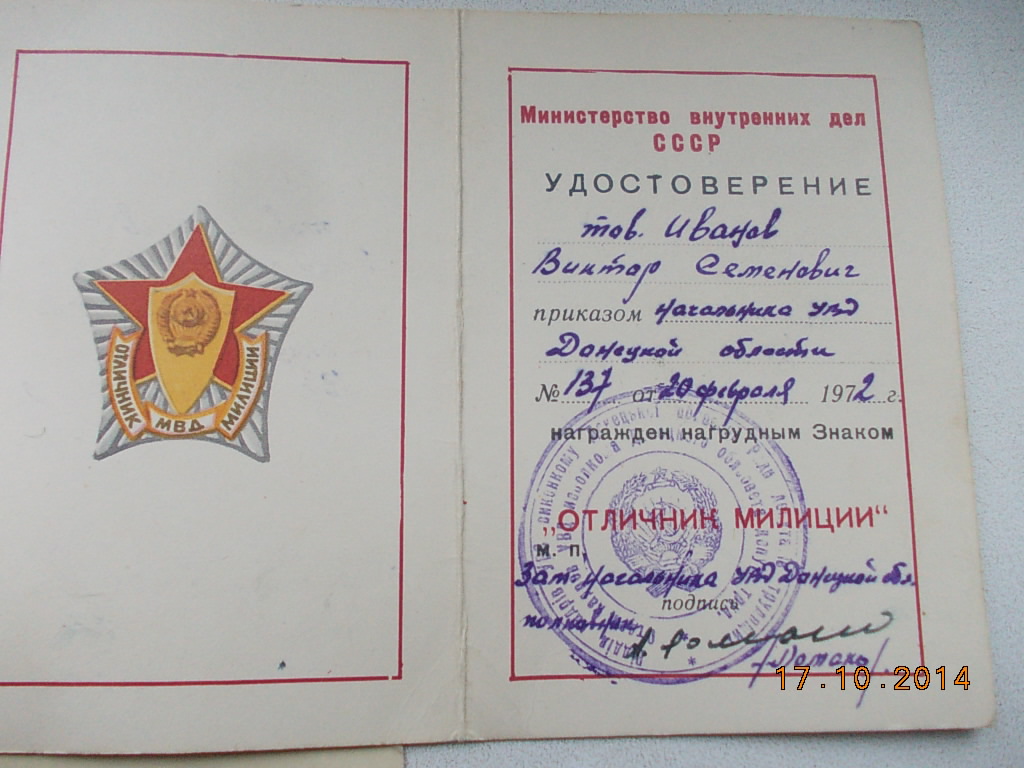 ОТЛИЧНИК
МВД
МИЛИЦИИ
Министерство внутренних дел
СССР
УДОСТОВЕРЕНИЕ
тов. Иванов
Виктор Семенович
приказом начальника УВД
Донецкой области
№ 137 от 20 февраля 1972 г.
награжден нагрудным Знаком
„ОТЛИЧНИК МИЛИЦИИ“
м. п.
Зам. начальника УВД Донецкой обл.
подпись
полковник
17.10.2014